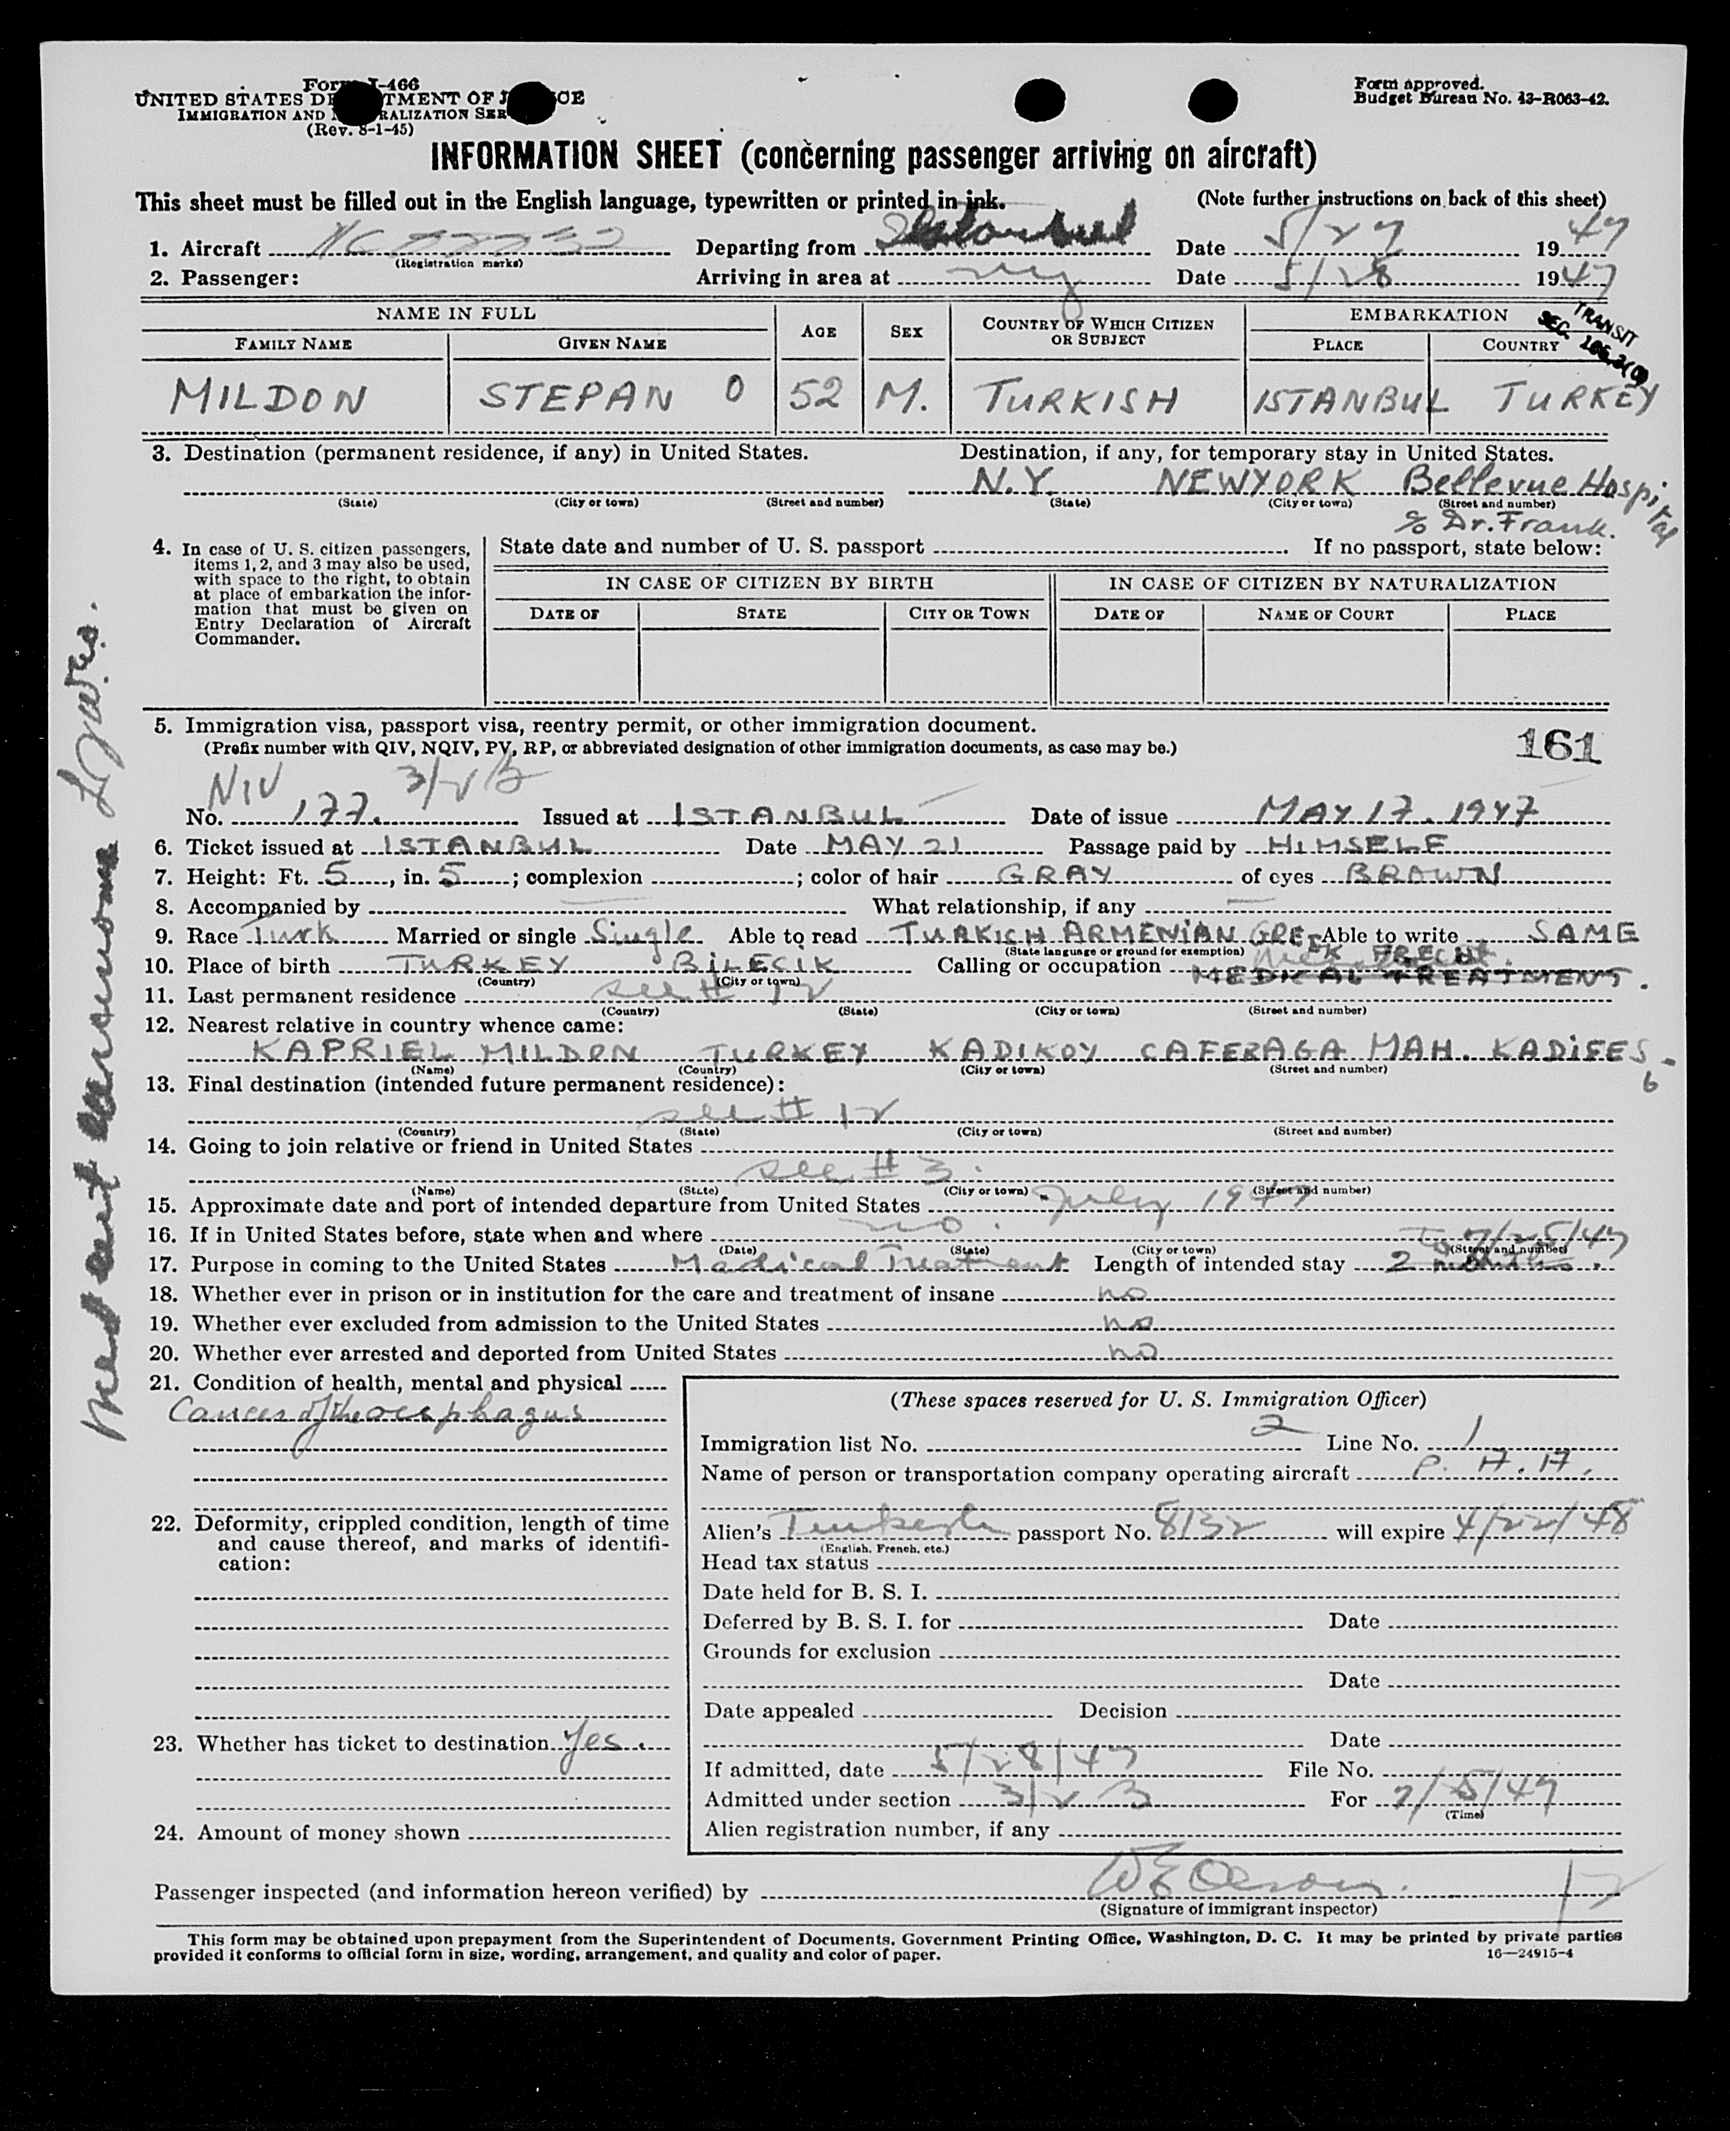 Form I-466
UNITED STATES DEPARTMENT OF JUSTICE
IMMIGRATION AND NATURALIZATION SER
(Rev. 8-1-45)
Form approved.
Budget Bureau No. 43-R063-42.
INFORMATION SHEET (concerning passenger arriving on aircraft)
This sheet must be filled out in the English language, typewritten or printed in ink. (Note further instructions on back of this sheet)
1. Aircraft NC Departing from Istanbul Date 5/27 1947
(Registration marks)
2. Passenger: Arriving in area at NY Date 5/28 1947
TRANSIT
SEC.
NAME IN FULL AGE SEX COUNTRY OF WHICH CITIZEN OR SUBJECT EMBARKATION
FAMILY NAME GIVEN NAME PLACE COUNTRY
MILDON STEPAN O 52 M. TURKISH ISTANBUL TURKEY
3. Destination (permanent residence, if any) in United States. Destination, if any, for temporary stay in United States.
N.Y. NEWYORK Bellevue Hospital
(State) (City or town) (Street and number) (State) (City or town) (Street and number)
c/o Dr. Frank.
4. In case of U. S. citizen passengers, items 1, 2, and 3 may also be used, with space to the right, to obtain at place of embarkation the information that must be given on Entry Declaration of Aircraft Commander.
State date and number of U. S. passport If no passport, state below:
IN CASE OF CITIZEN BY BIRTH IN CASE OF CITIZEN BY NATURALIZATION
DATE OF STATE CITY OR TOWN DATE OF NAME OF COURT PLACE
5. Immigration visa, passport visa, reentry permit, or other immigration document.
(Prefix number with QIV, NQIV, PV, RP, or abbreviated designation of other immigration documents, as case may be.)
161
NIV 3/2 B
No. 177. Issued at ISTANBUL Date of issue MAY 17. 1947
6. Ticket issued at ISTANBUL Date MAY 21 Passage paid by HIMSELF
7. Height: Ft. 5, in. 5; complexion ; color of hair GRAY of eyes BROWN
8. Accompanied by — What relationship, if any —
9. Race Turk Married or single Single Able to read TURKICH ARMENIAN GRE- Able to write SAME
(State language or ground for exemption) EK FRECH.
10. Place of birth TURKEY BILECIK Calling or occupation MEDICAL TREATMENT.
(Country) (City or town)
11. Last permanent residence see # 12
(Country) (State) (City or town) (Street and number)
12. Nearest relative in country whence came:
KAPRIEL MILDON TURKEY KADIKOY CAFERAGA MAH. KADIFES-
6
(Name) (Country) (City or town) (Street and number)
13. Final destination (intended future permanent residence):
see # 12
(Country) (State) (City or town) (Street and number)
14. Going to join relative or friend in United States
see # 3.
(Name) (State) (City or town) (Street and number)
15. Approximate date and port of intended departure from United States July 1947
16. If in United States before, state when and where no.
(Date) (State) (City or town) (Street and number)
To 7/25/47
17. Purpose in coming to the United States Medical Treatment Length of intended stay 2 months.
18. Whether ever in prison or in institution for the care and treatment of insane no
19. Whether ever excluded from admission to the United States no
20. Whether ever arrested and deported from United States no
21. Condition of health, mental and physical
Cancer of the oesphagus
22. Deformity, crippled condition, length of time and cause thereof, and marks of identification:
23. Whether has ticket to destination Yes.
24. Amount of money shown
(These spaces reserved for U. S. Immigration Officer)
Immigration list No. 2 Line No. 1
Name of person or transportation company operating aircraft P. A. A.
Alien's Turkish passport No. 8132 will expire 4/22/48
(English, French, etc.)
Head tax status
Date held for B. S. I.
Deferred by B. S. I. for Date
Grounds for exclusion
Date
Date appealed Decision
Date
If admitted, date 5/28/47 File No.
Admitted under section 3/2 B For 7/ 5/47
(Time)
Alien registration number, if any
Passenger inspected (and information hereon verified) by
(Signature of immigrant inspector)
This form may be obtained upon prepayment from the Superintendent of Documents, Government Printing Office, Washington, D. C. It may be printed by private parties
provided it conforms to official form in size, wording, arrangement, and quality and color of paper. 16—24915-4
Med cert carcinoma